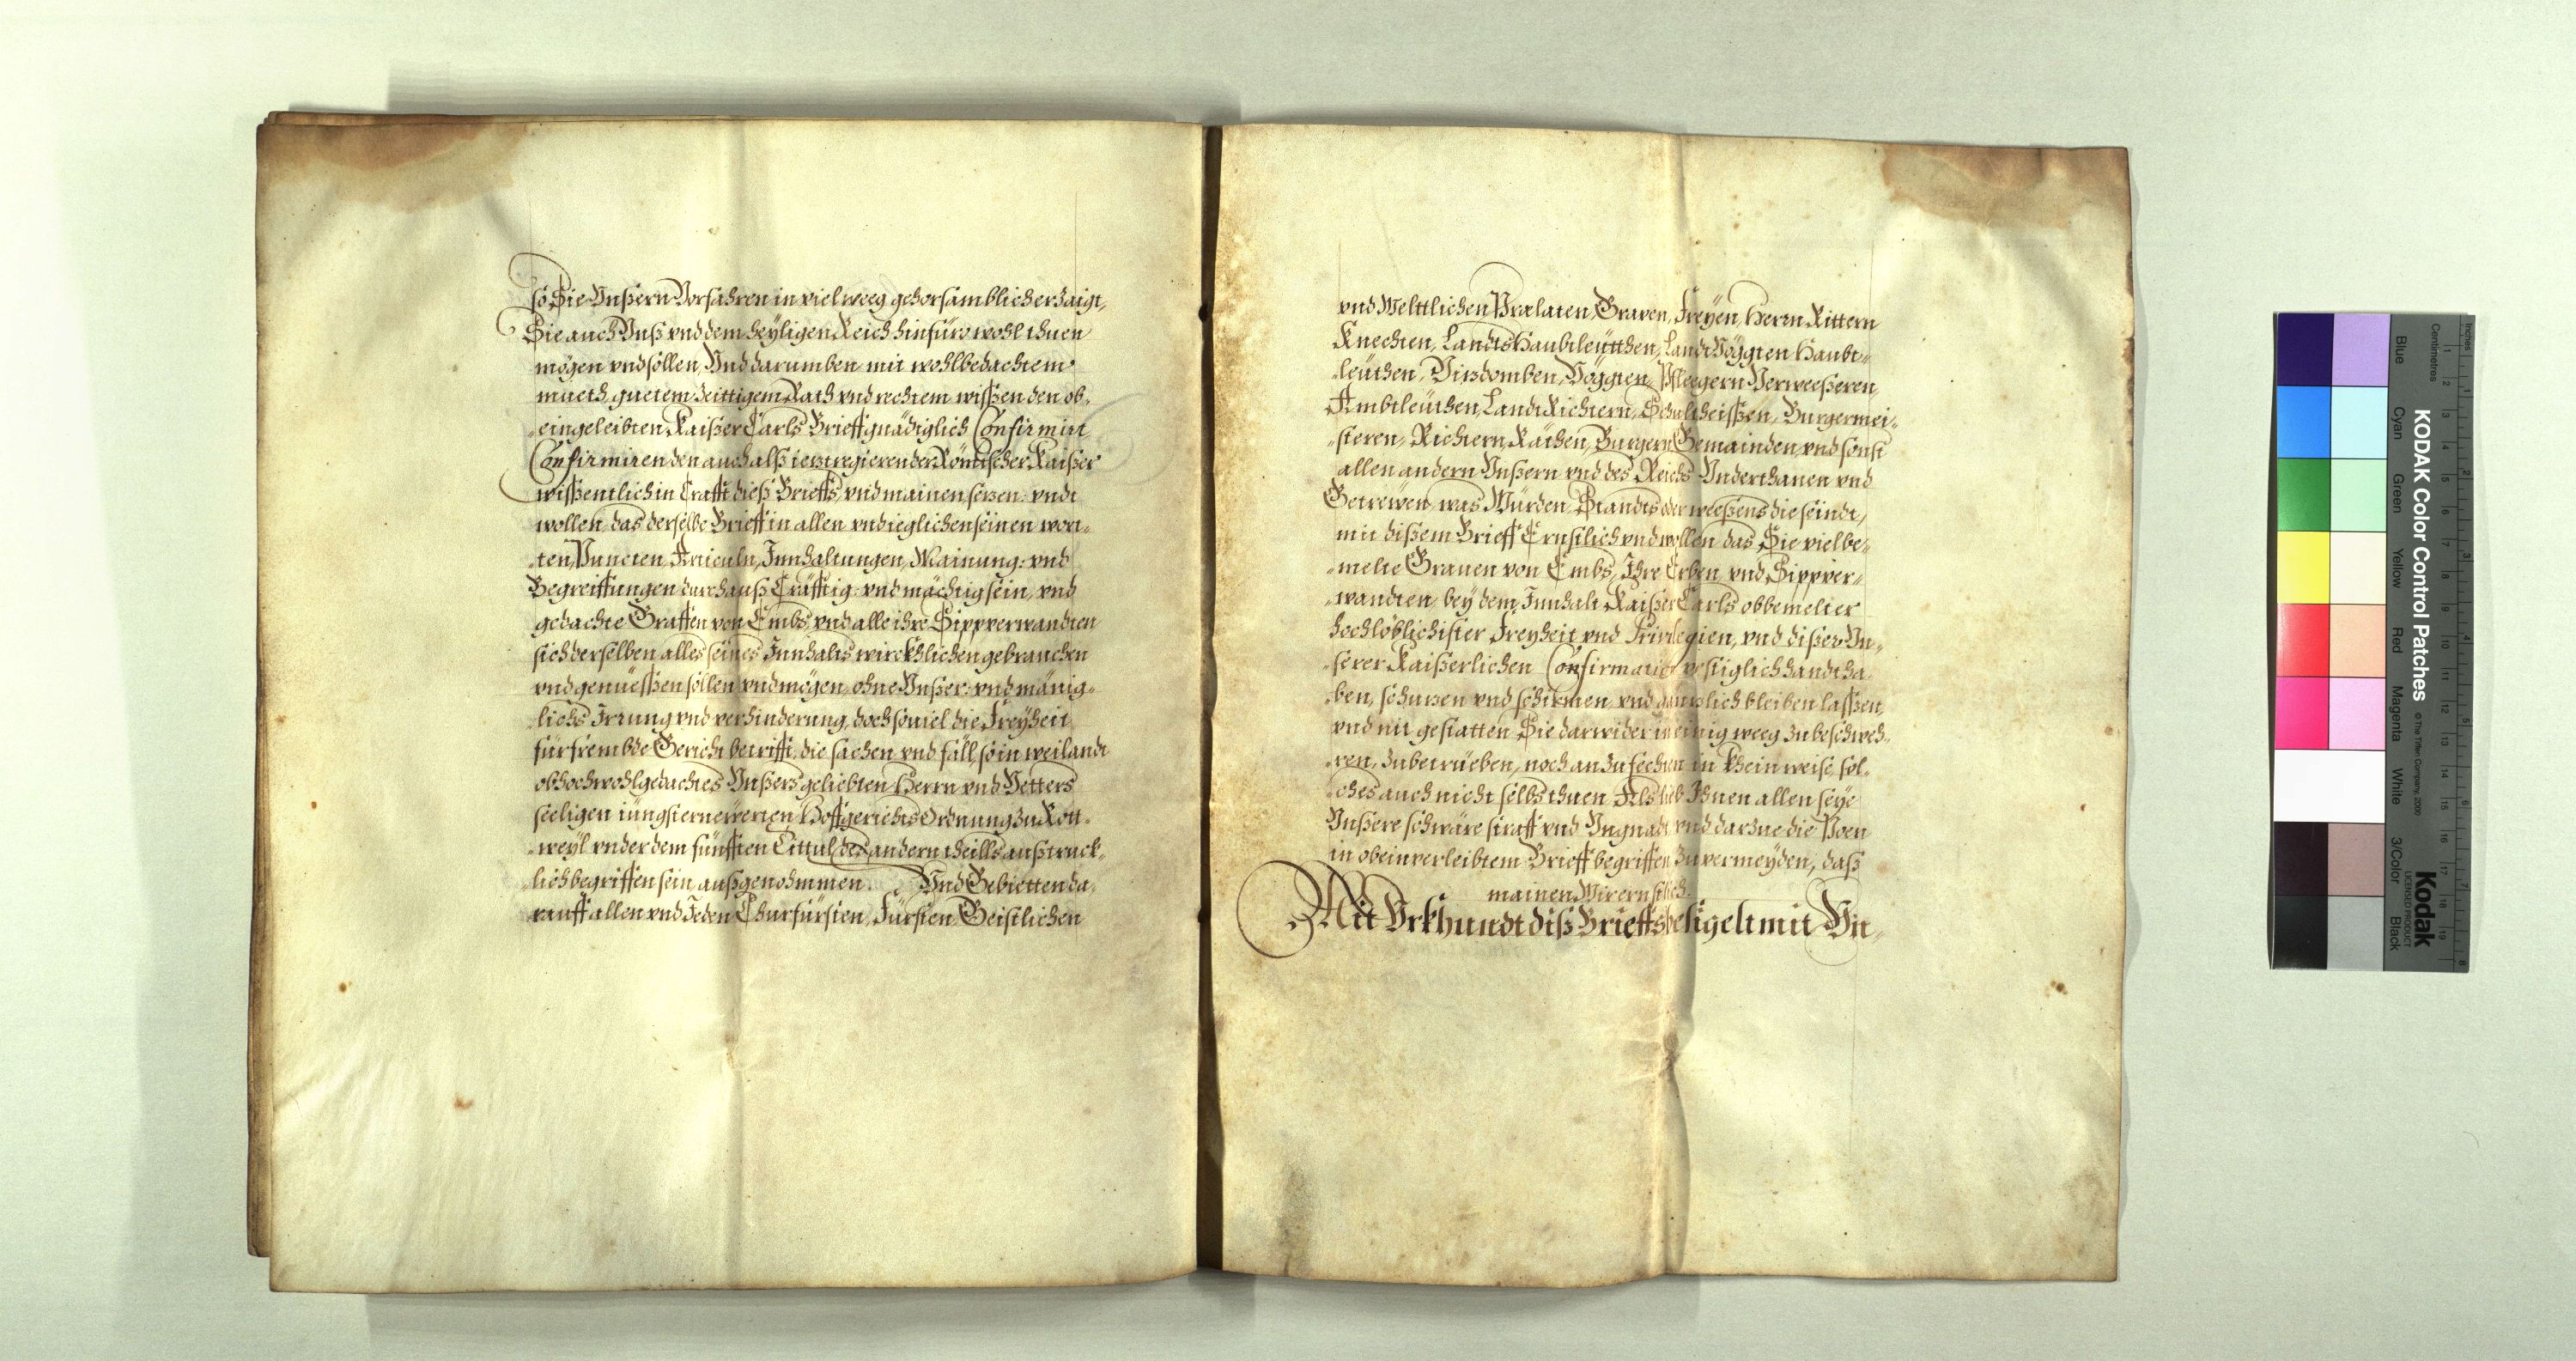 so Sie Vnßern Vorfahren in viel weeg gehorsamblich erzaigt,
Sie auch Vnß vnd dem heyligen Reich hinfüro wohl thuen
mögen vnd sollen, Vnd darumben mit wohlbedachtem
mueth, guetem zeittigem Rath vnd rechtem wißen den ob,
,eingeleibten Kaißer Carls Brieff gnädiglich Confirmirt
Confirmiren den auch alß ieztregierender Römischer Kaißer
wißentlich in Crafft dieß Brieffs, vnd mainen sezen vndt
wollen, das derselbe Brieff in allen vnd ieglichen seinen wor,,
,ten, Puncten, Articuln, Innhaltungen, Mainung: vnd
Begreiffungen durchauß Cräfftig: vnd mächtig sein, vnd
gedachte Graffen von Embs, vnd alle ihre Sippverwandten
sich derselben alles seines Innhalts wirckhlichen gebrauchen
vnd genüeßen sollen vnd mögen, ohne Vnßer: vnd mänig,,
lichs Irrung vnd verhinderung, doch souiel die Freyheit
für frembde Gericht betrifft, die sachen vnd fäll, so in weilandt
obhochwohlgedachtes Vnßers geliebten Herrn vnd Vetters
seeligen iüngst ernewerten Hoffgerichts Ordnung zu Rott,
,weyl vnder dem fünfften Tittul des andern theills außtruck,
,lich begriffen sein, außgenohmmen. Vnd Gebietten da,
rauff allen vnd Jeden Churfürsten, Fürsten, Geistlichen
vnd Welttlichen, Prælaten, Graven, Freyen, Herrn, Rittern
Knechten, LandtsHaubtleütthen, LandtVöggten Haubt,,
,leüthen, Vizdomben, Vöggten, Pfleegern Verweeßeren,
Ambtleüthen, LandtRichtern, Schultheißen, Burgermei,,
,steren, Richtern, Räthen, Burgern, Gemainden, vnd sonst
allen andern Vnßern vnd des Reichs Vnderthanen vnd
Getrewen, was Würden, Standts oder weeßens die seindt,
mit dißem Brieff Ernstlich vnd wollen, das Sie vielbe,,
,melte Grauen von Embs, Ihre Erben, vnd Sippver,,
,wandten, bey dem Innhalt Kaißer Carls obbemelter
hochlöblichister Freyheit vnd Privilegien, vnd dißer Vn,,
,serer Kaißerlichen Confirmation vestiglich handtha,
,ben, schuzen vnd schirmen, vnd gänzlich bleiben laßen,
vnd nit gestatten, Sie darwider in einig weeg zu beschweh,
,ren, zubetrüeben, noch anzufechten in khein weiß, sol,
,ches auch nicht selbs thuen, Als lieb Ihnen allen seye
Vnßere schwäre straff vnd Vngnadt vnd darzue die Poen
in obeinverleibtem Brieff begriffen zu vermeyden, daß
mainen Wir ernstlich.
Mit Vrkhundt diß Brieffs besigelt mit Vn,,
KODAK Color Control Patches
©The Tiffen Company, 2000
Kodak
LICENSED PRODUCT
Inches
Centimetres
Blue
Cyan
Green
Yellow
Red
Magenta
White
3/Color
Black